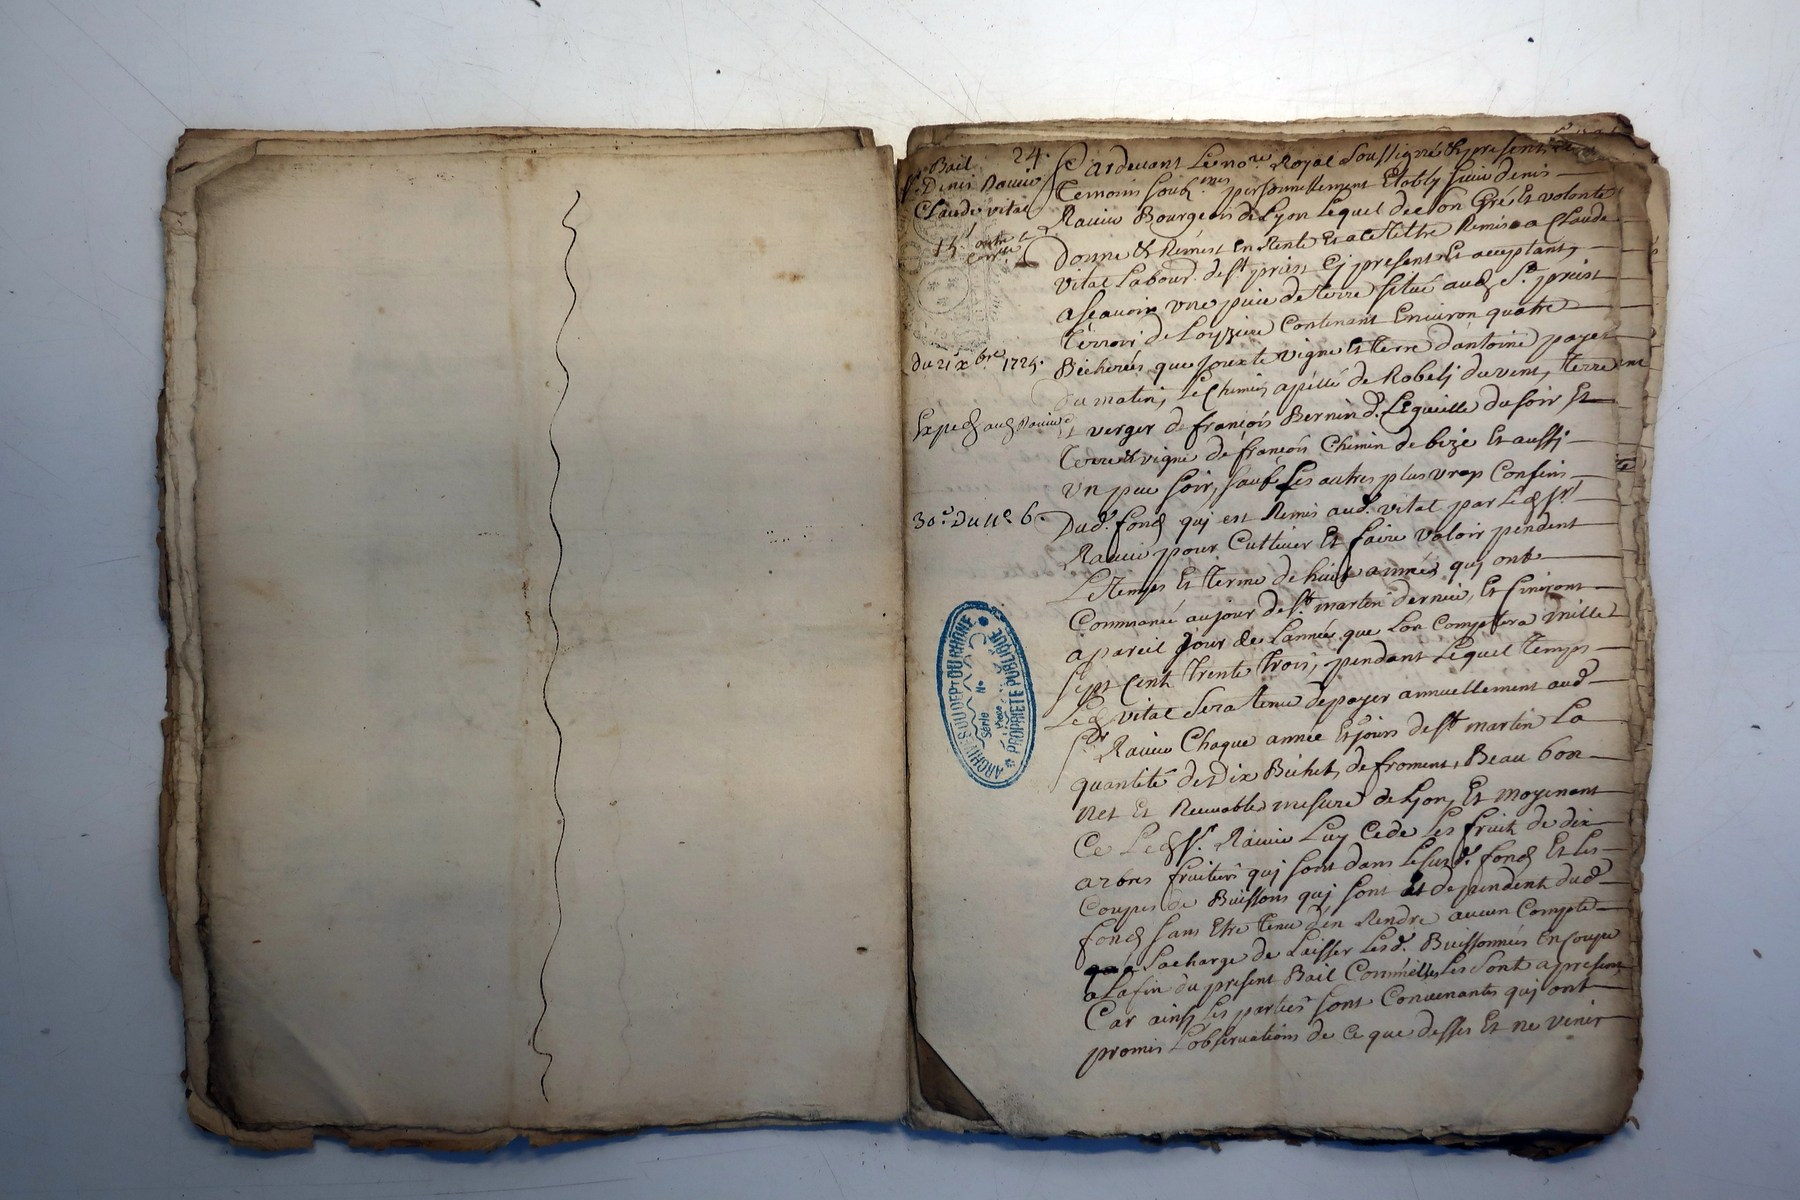 Bail
Sr. Denis Ravier
Claude vital
du 21 xbre 1725.
Exped aud Ravier
30e. Du no. 6.
24.
Pardevant Le nore. Royal Soussigné & presents
Temoins Soub.nes personnellement Etably sieur denis
Ravier Bourgeois de Lyon Lequel de son Gré Et volonté
donne & Rémest En Rente Et a ce tittre Remis a Claude
vital Labour. de st. priest Cy present Et acceptant,
ascavoir une piece de terre sittué aud St. priest
Terroir de Loyziere Contenant Environ quatre
Bicherées que jouxte vigne Et terre d'antoine payet
du matin, Le Chemin apéllé de Robelj du vent, terre
Et verger de françois Bernin d. Léguille du soir Et
terre & vigne de françois Chemin de bize Et aussi
un peu soir, sauf Les autres plus vrays Confins
Dud. fond qui est Remis aud. vital par Led sr.
Ravier pour Cultiver Et faire valoir pendent
Le temps Et terme de huit années qui ont
Commancé au jour de st. martin dernier, Et finiront
a pareil jour de L'année que Lon Comptera mille
sept Cent trente trois, pendant Lequel temps
Led vital Sera tenu de payer annuellement aud
sr Ravier Chaque année Et jours de st martin La
quantité de Dix Bichets de froment, Beau bon
net Et Recevable mesure de Lyon, Et moyenant
Ce Led sr. Ravier Luy Cede Les fruits de dix
arbres fruitiers qui sont dans Lesusd. fond Et Les
Coupes de Buissons qui sont Et dependent dud
fond sans Etre tenu d'en Rendre aucun Compte
a La charge de Laisser Lesd. Buissonnées En Coupe
a La fin du present Bail Comme Elles Sont a present
Car ainsy Les parties sont Convenantes qui ont
promis L'observations de Ce que desses Et ne venir
ARCHIVES DU DEPT DU RHÔNE
Série
No
Pièce
PROPRIETE PUBLIQUE